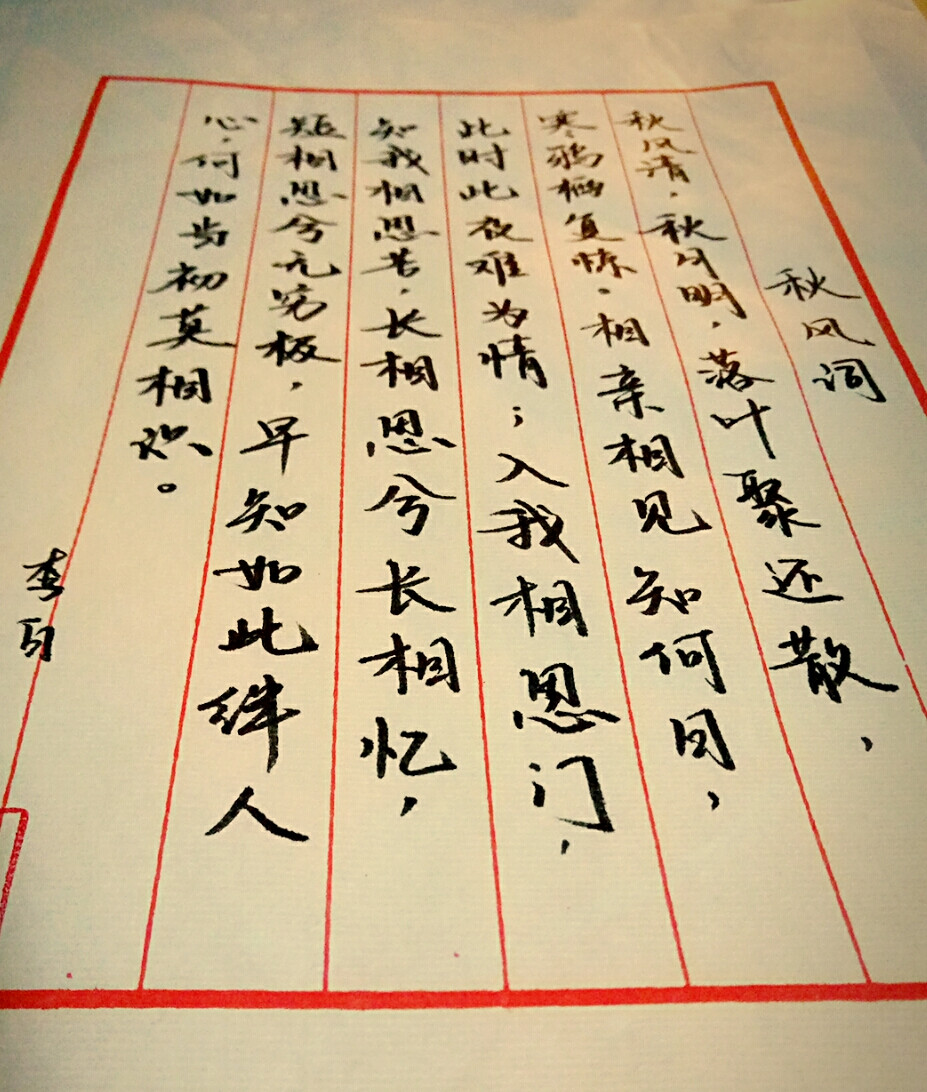 秋风词
秋风清，秋月明，落叶聚还散，
寒鸦栖复惊。相亲相见知何日，
此时此夜难为情；入我相思门，
知我相思苦，长相思兮长相忆，
短相思兮无穷极，早知如此绊人
心，何如当初莫相识。
李白